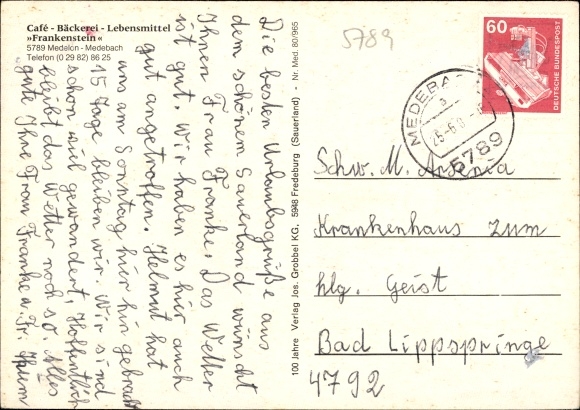 Café - Bäckerei - Lebensmittel
»Frankenstein«
5789 Medelon - Medebach
Telefon (0 29 82) 86 25
Die besten Urlaubsgrüße aus
dem schönem Sauerland wünscht
Ihnen Frau Franke. Das Wetter
ist gut. Wir haben es hier auch
gut angetroffen. Helmut hat
uns am Sonntag hier hin gebracht
15 Tage bleiben wir. Wir sind
schon viel gewandert. Hoffentlich
bleibt das Wetter noch so. Alles
gute Ihre Frau Franke u. Fr.
100 Jahre Verlag Jos. Grobbel KG, 5948 Fredeburg (Sauerland) - Nr. Med. 80/965
5789
60
DEUTSCHE BUNDESPOST
MEDEBA
a
5789
Schw. M. Arsenia
Krankenhaus zum
hlg. Geist
Bad Lippspringe
4792